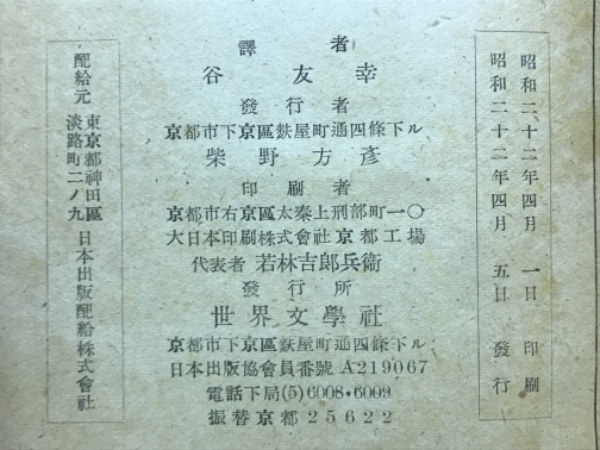 昭和二十二年四月一日印刷
昭和二十二年四月五日發行
譯者
谷友幸
發行者
京都市下京區麩屋町通四條下ル
柴野方彥
印刷者
京都市右京區太秦上刑部町一〇
大日本印刷株式會社京都工場
代表者 若林吉郎兵衞
發行所
世界文學社
京都市下京區麩屋町通四條下ル
日本出版協會員番號 A219067
電話下局(5)6008・6009
振替京都25622
配給元 東京都神田區
淡路町二ノ九 日本出版配給株式會社